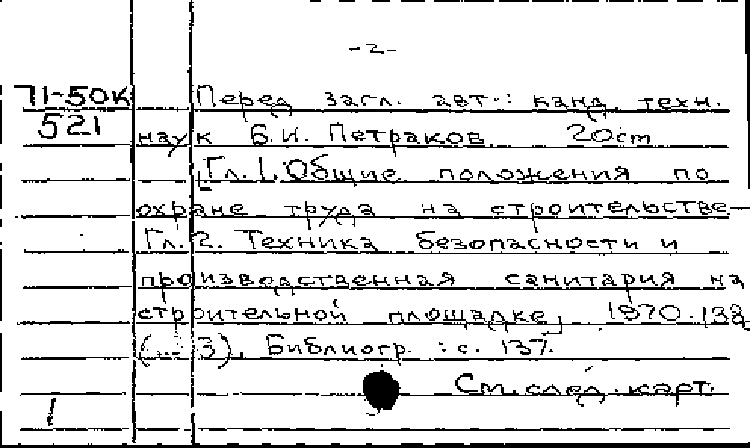 -2-
71-50к Перед загл. авт.: канд. техн.
521 наук Б.И. Петраков 20см
[Гл. 1. Общие положения по
охране труда на строительстве-
Гл. 2. Техника безопасности и
производственная санитария на
строительной площадке] 1970. 138
3). Библиогр.: с. 137.
См. след. карт.
1